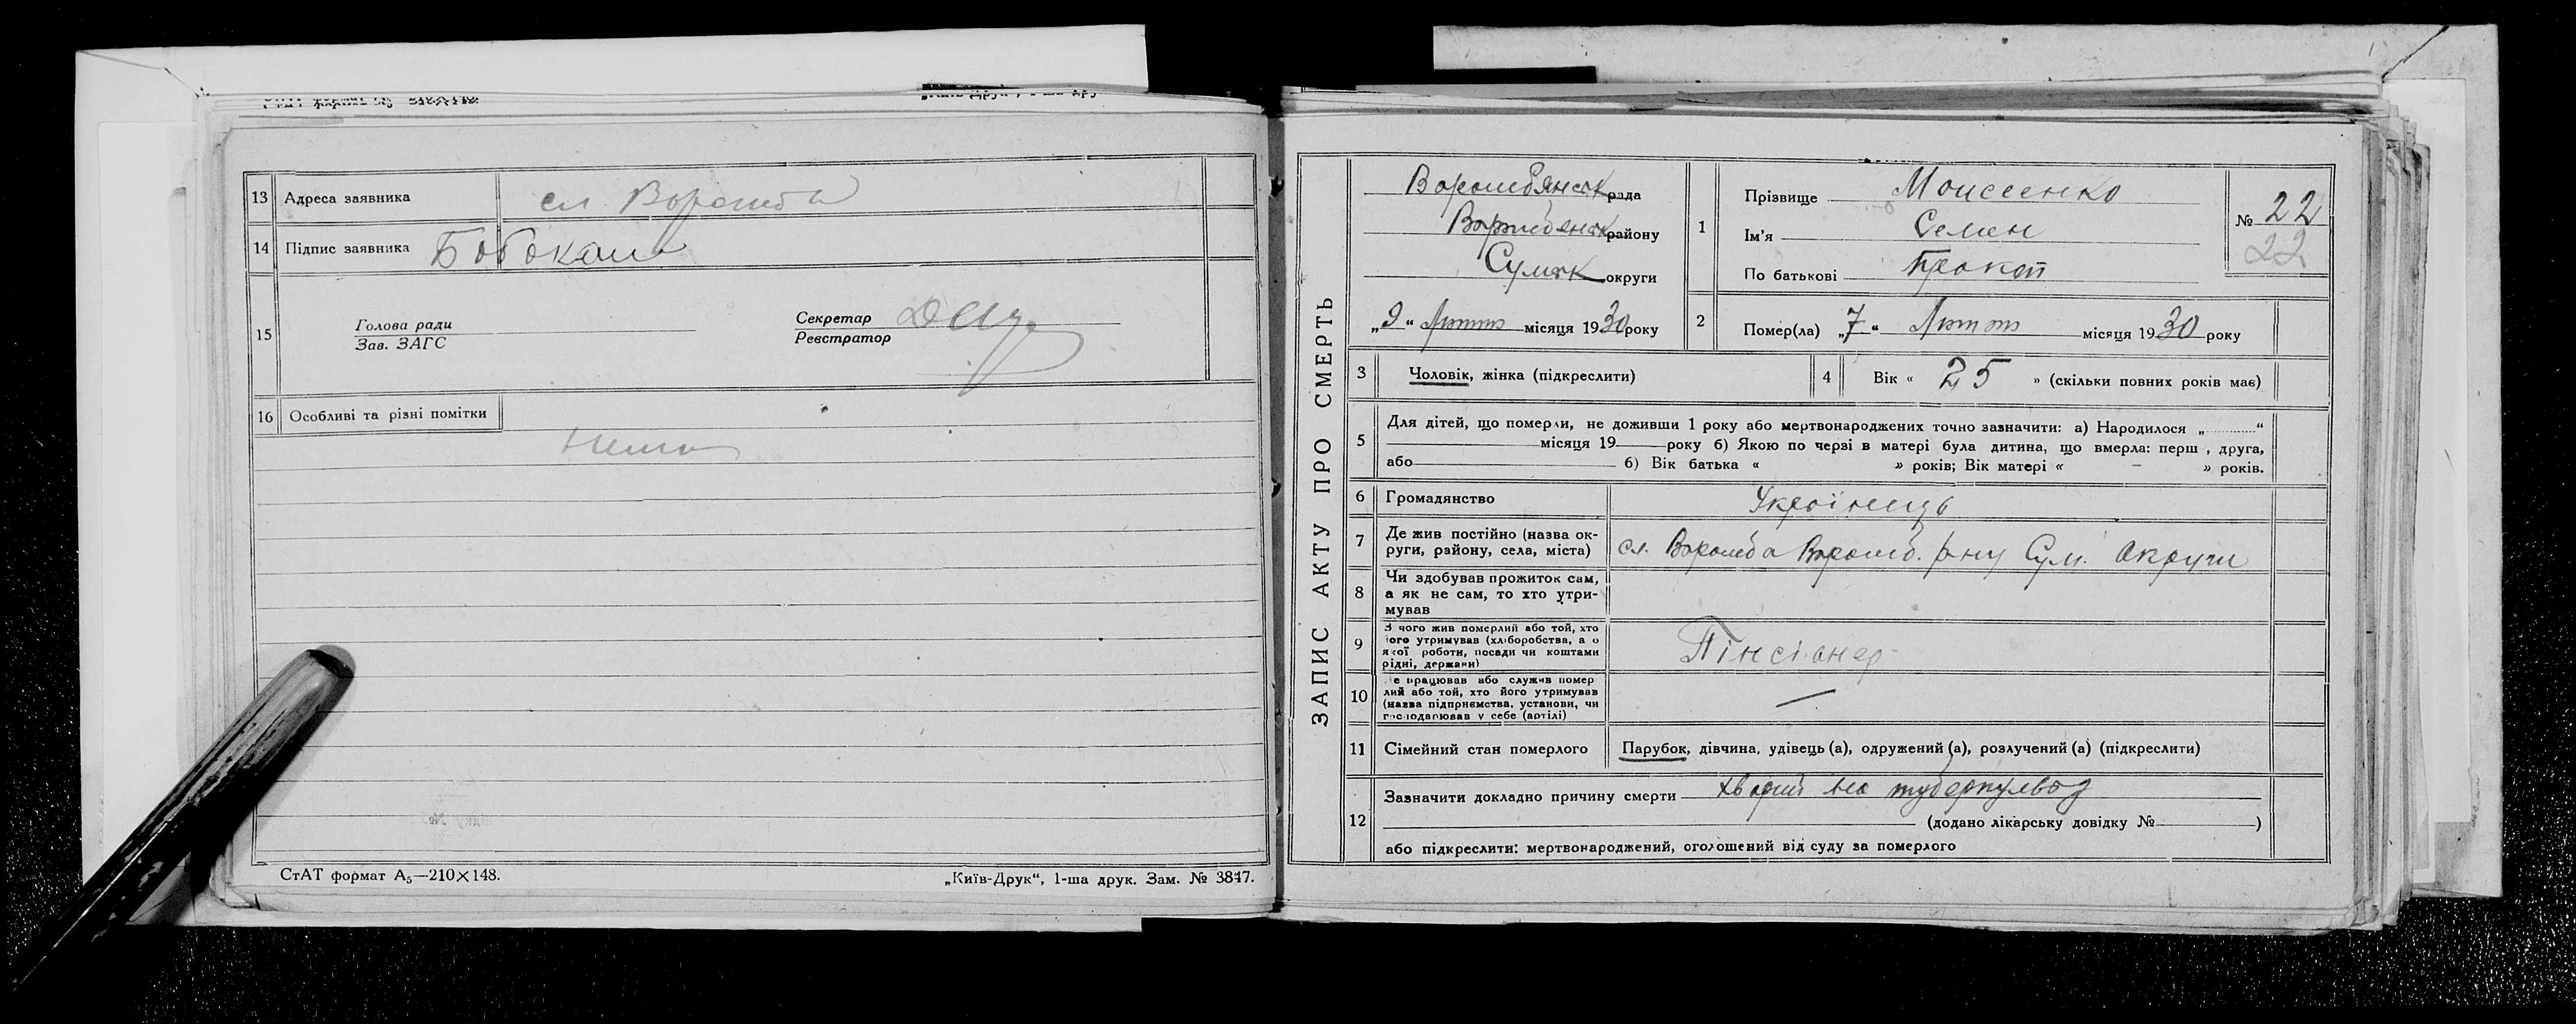 13 Адреса заявника сл. Ворожба
14 Підпис заявника
15 Голова ради
Зав. ЗАГС
Секретар
Реєстратор
16 Особливі та різні помітки
Нема
СтАТ формат А5—210×148.
„Київ-Друк“, 1-ша друк. Зам. № 3847.
ЗАПИС АКТУ ПРО СМЕРТЬ
Ворожбянськ рада
Ворожбянськ району
Сумськ округи
„9“ Лютого місяця 1930 року
1 Прізвище Моисеенко
Ім'я Семен
По батькові Прокоп
№ 22
22
2 Помер(ла) „7“ Лютого місяця 1930 року
3 Чоловік, жінка (підкреслити)
4 Вік « 25 » (скільки повних років має)
5 Для дітей, що померли, не доживши 1 року або мертвонароджених точно зазначити: а) Народилося „ “
місяця 19 року б) Якою по черзі в матері була дитина, що вмерла: перш , друга,
або б) Вік батька « » років; Вік матері « – » років.
6 Громадянство Українець
7 Де жив постійно (назва ок-
руги, району, села, міста) сл. Ворожба Ворожб. р-ну Сум. Округи
8 Чи здобував прожиток сам,
а як не сам, то хто утри-
мував
9 З чого жив померлий або той, хто
його утримував (хліборобства, а о
якої роботи, посади чи коштами
рідні, держави)
Пінсіонер
10 е працював або служив помер
лий або той, хто його утримував
(назва підприємства, установи, чи
господарював у себе (артілі)
—
11 Сімейний стан померлого Парубок, дівчина, удівець (а), одружений (а), розлучений (а) (підкреслити)
12 Зазначити докладно причину смерти хворий на туберкульоз
(додано лікарську довідку № )
або підкреслити: мертвонароджений, оголошений від суду за померлого